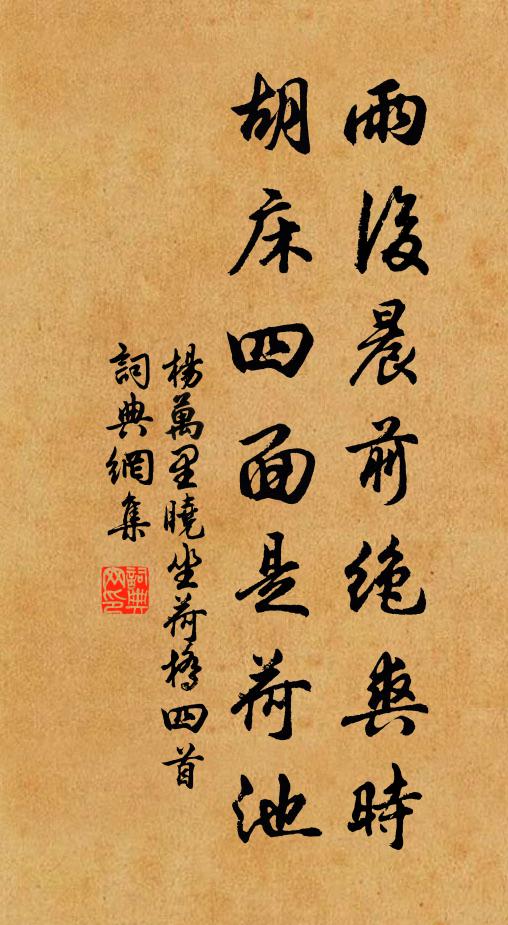 雨後晨前絶爽時
胡床四面是荷池
楊萬里曉坐荷橋四首
詞典網集
詞典網印